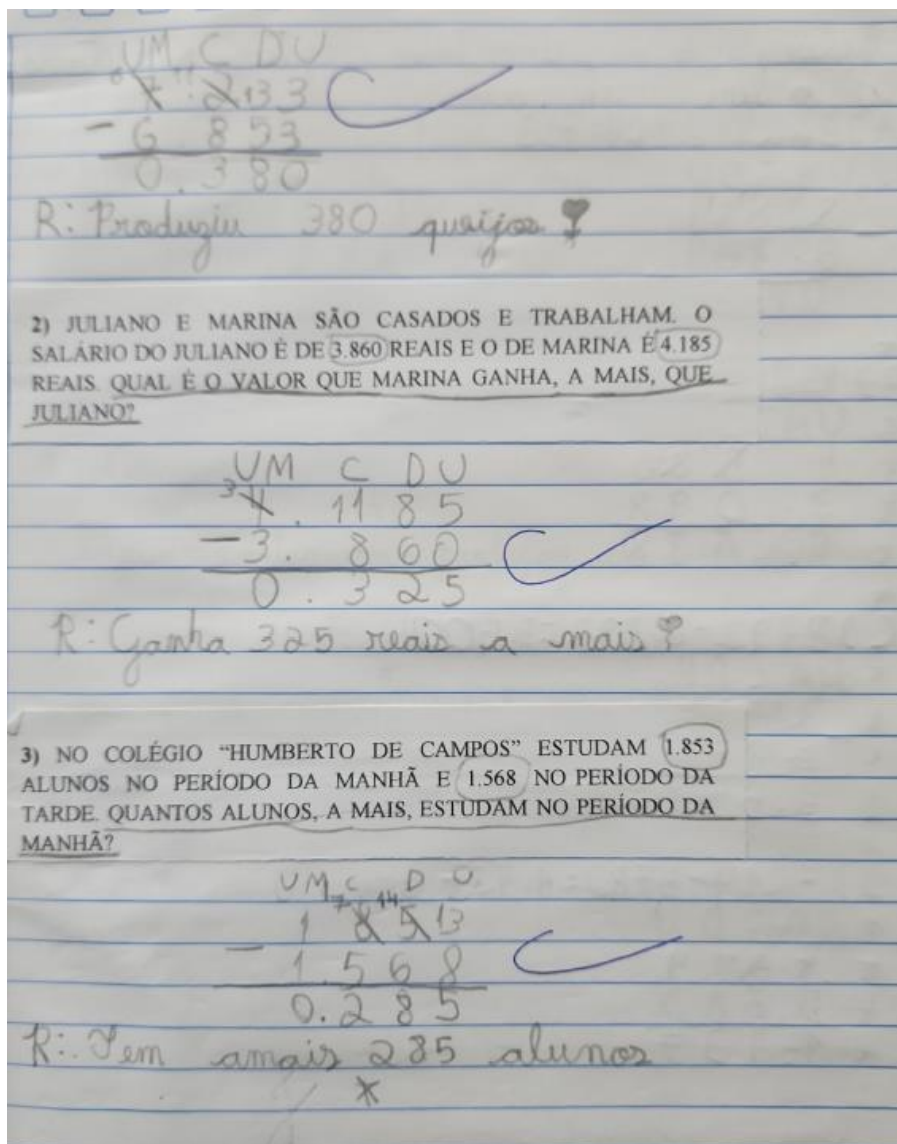 UM C D U
6 7 . 11 2 13 3
- 6 853
0.380
R: Produziu 380 queijos
2) JULIANO E MARINA SÃO CASADOS E TRABALHAM. O
SALÁRIO DO JULIANO É DE 3.860 REAIS E O DE MARINA É 4.185
REAIS. QUAL É O VALOR QUE MARINA GANHA, A MAIS, QUE
JULIANO?
UM C D U
3 4 . 11 8 5
- 3. 8 6 0
0 . 3 2 5
R: Ganha 325 reais a mais
3) NO COLÉGIO “HUMBERTO DE CAMPOS” ESTUDAM 1.853
ALUNOS NO PERÍODO DA MANHÃ E 1.568 NO PERÍODO DA
TARDE. QUANTOS ALUNOS, A MAIS, ESTUDAM NO PERÍODO DA
MANHÃ?
UM C D U
1 7 8 14 5 13
- 1.568
0.285
R: Tem amais 285 alunos